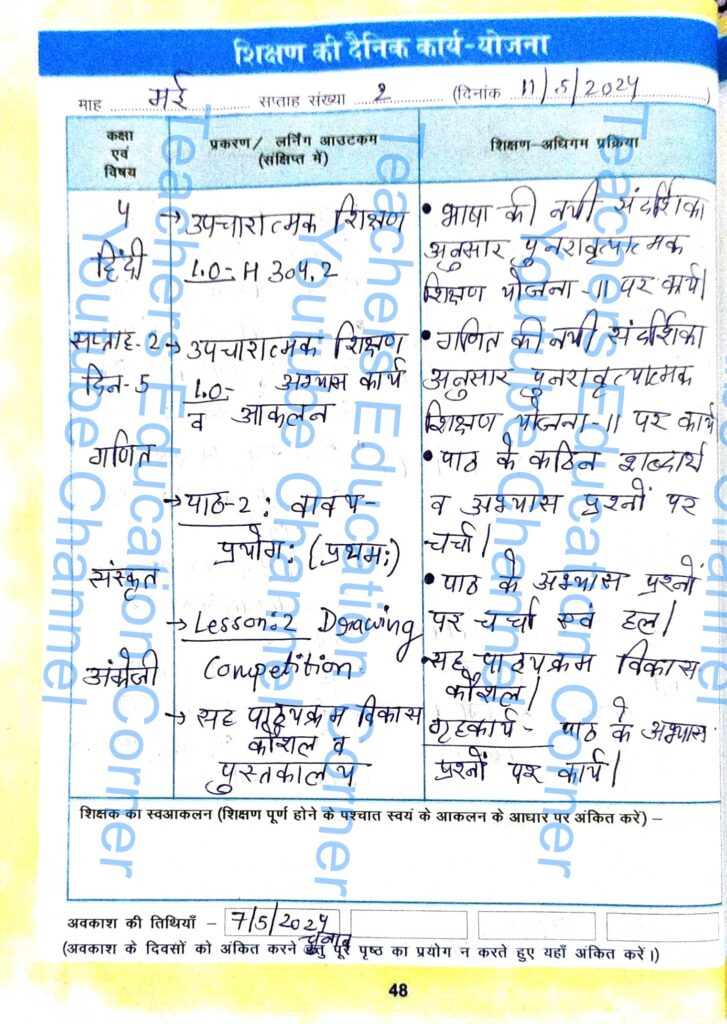 शिक्षण की दैनिक कार्य-योजना
माह मई सप्ताह संख्या 2 (दिनांक 11/5/2024)
कक्षा एवं विषय
प्रकरण/ लर्निंग आउटकम (संक्षिप्त में)
शिक्षण-अधिगम प्रक्रिया
5
हिंदी
सप्ताह-2
दिन-5
गणित
संस्कृत
अंग्रेजी
→ उपचारात्मक शिक्षण
L.O- H 304.2
→ उपचारात्मक शिक्षण
L.O- अभ्यास कार्य
व आकलन
→ पाठ-2 : वाक्य-
प्रयोग: (प्रथम:)
→ Lesson:2 Drawing
Competition
→ सह पाठ्यक्रम विकास
कौशल व
पुस्तकालय
• भाषा की नयी संदर्शिका
अनुसार पुनरावृत्यात्मक
शिक्षण योजना-11 पर कार्य।
• गणित की नयी संदर्शिका
अनुसार पुनरावृत्यात्मक
शिक्षण योजना-11 पर कार्य
• पाठ के कठिन शब्दार्थ
व अभ्यास प्रश्नों पर
चर्चा।
• पाठ के अभ्यास प्रश्नों
पर चर्चा एवं हल।
• सह पाठ्यक्रम विकास
कौशल।
गृहकार्य- पाठ के अभ्यास
प्रश्नों पर कार्य।
शिक्षक का स्वआकलन (शिक्षण पूर्ण होने के पश्चात स्वयं के आकलन के आधार पर अंकित करें) –
अवकाश की तिथियाँ – 7/5/2024
चुनाव
(अवकाश के दिवसों को अंकित करने हेतु पूरे पृष्ठ का प्रयोग न करते हुए यहाँ अंकित करें।)
48
Teachers Education Corner
Youtube Channel
Teachers Education Corner
Youtube Channel
Teachers Education Corner
Youtube Channel